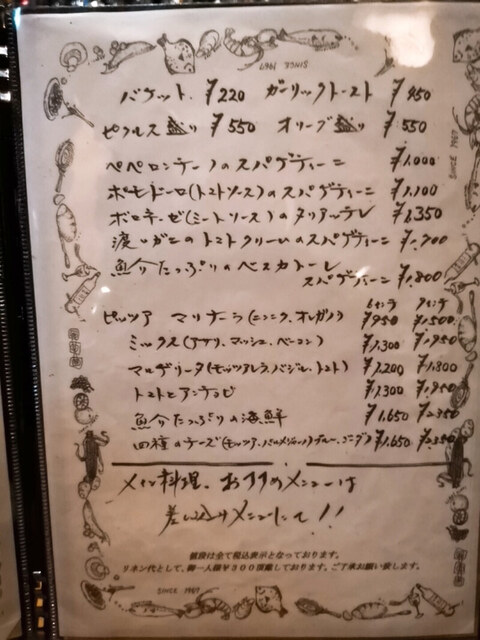 SINCE 1967
バケット. ¥220 ガーリックトースト ¥450
ピクルス盛り ¥550 オリーブ盛り ¥550
SINCE 1967
ペペロンチーノのスパゲティーニ ¥1.000
ポモドーロ(トマトソース)のスパゲティーニ ¥1,100
ボロネーゼ(ミートソース)のタリアッテレ ¥1,350
渡りガニのトマトクリームのスパゲティーニ ¥1,700
魚介たっぷりのペスカトーレ
スパゲティーニ ¥1,800
ピッツァ マリナーラ(ニンニク、オレガノ) ¥950 ¥1,500
ミックス(サラミ、マッシュ、ベーコン) ¥1,300 ¥1,950
マルゲリータ(モッツアレラ、バジル、トマト) ¥1,200 ¥1,800
トマトとアンチョビ ¥1,300 ¥1,950
魚介たっぷりの海鮮 ¥1,650 ¥2,350
四種のチーズ ¥1,650 ¥2,350
メイン料理、おすすめメニューは
差し込みメニューにて!!
値段は全て税込表示となっております。
リネン代として、御一人様¥300頂戴しております。ご了承お願い致します。
SINCE 1967